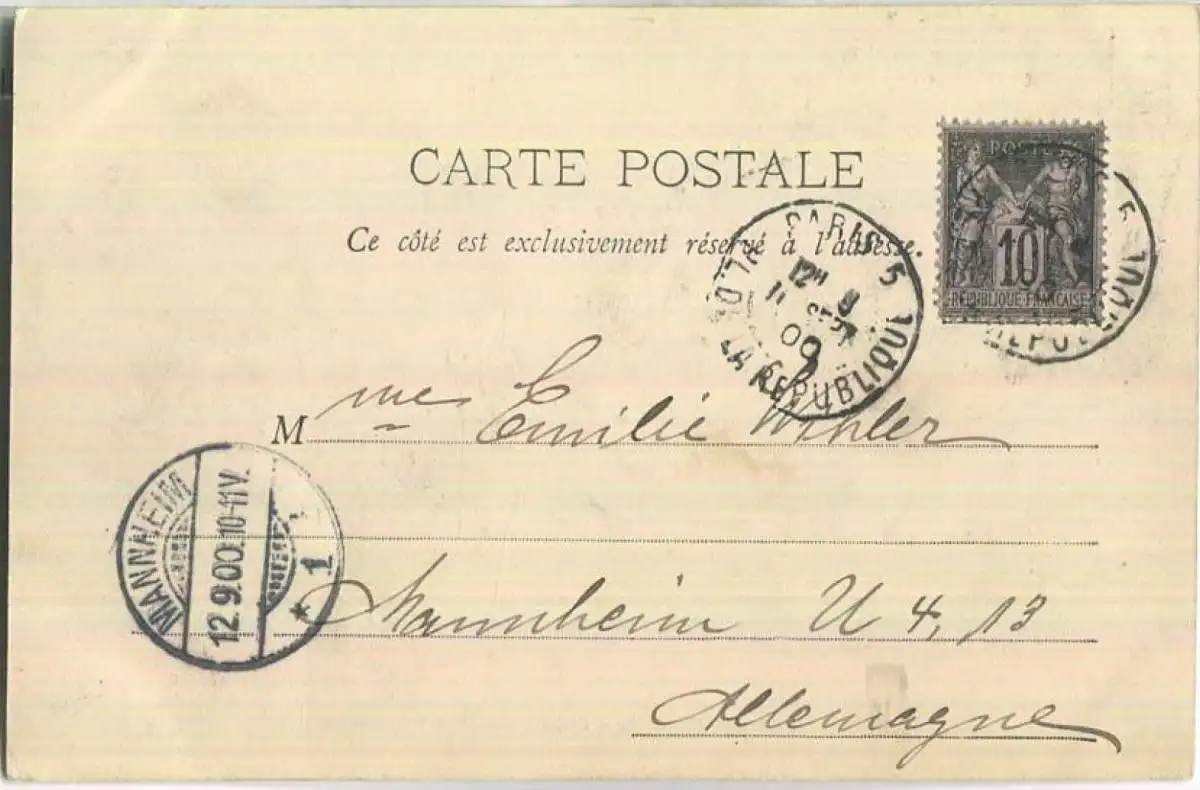 CARTE POSTALE
Ce côté est exclusivement réservé à l'adresse.
POSTE
10
REPUBLIQUE FRANÇAISE
PARIS 5
12H
11 SEPT
00
LA REPUBLIQUE
REPUBLIQUE
Mme Emilie
MANNHEIM
12.9.00.10-11V.
* 1
Mannheim U 4, 13
Allemagne